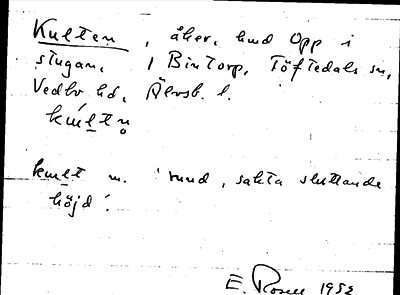 Kulten, åker, hud Opp i
stugan, i Bintorp, Töftedals sn,
Vedbo hd, Älvsb. l.
kult m. 'rund, sakta sluttande
höjd'.
E. Rosell 1952